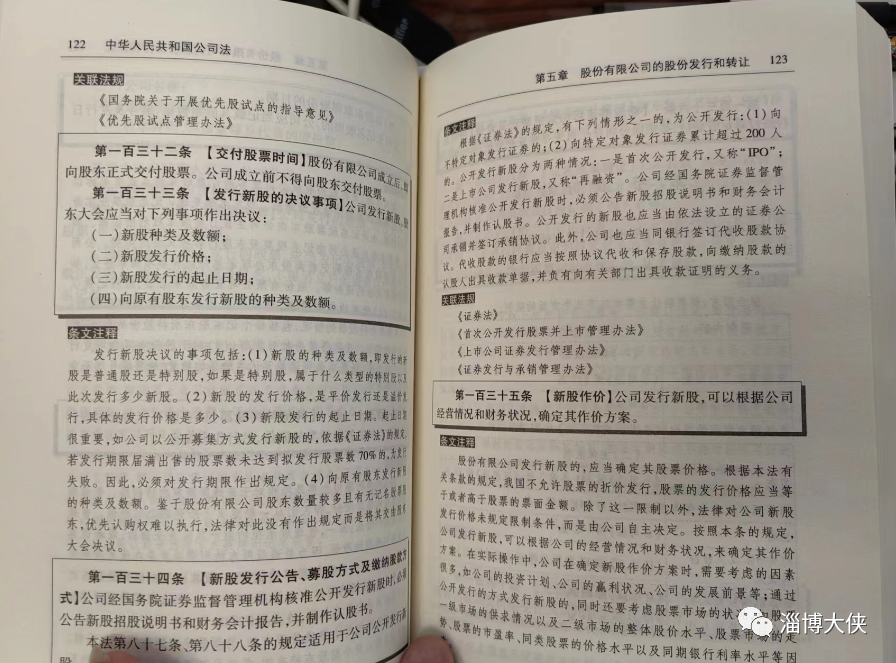 122 中华人民共和国公司法
关联法规
《国务院关于开展优先股试点的指导意见》
《优先股试点管理办法》
第一百三十二条 【交付股票时间】股份有限公司成立后，即
向股东正式交付股票。公司成立前不得向股东交付股票。
第一百三十三条 【发行新股的决议事项】公司发行新股，股
东大会应当对下列事项作出决议：
(一)新股种类及数额；
(二)新股发行价格；
(三)新股发行的起止日期；
(四)向原有股东发行新股的种类及数额。
条文注释
发行新股决议的事项包括：(1)新股的种类及数额，即发行的新
股是普通股还是特别股，如果是特别股，属于什么类型的特别股以及
此次发行多少新股。(2)新股的发行价格，是平价发行还是溢价发
行，具体的发行价格是多少。(3)新股发行的起止日期。起止日期
很重要，如公司以公开募集方式发行新股的，依据《证券法》的规定，
若发行期限届满出售的股票数未达到拟发行股票数70%的，为发行
失败。因此，必须对发行期限作出规定。(4)向原有股东发行新股
的种类及数额。鉴于股份有限公司股东数量较多且有无记名股票股
东，优先认购权难以执行，法律对此没有作出规定而是将其交由股东
大会决议。
第一百三十四条 【新股发行公告、募股方式及缴纳股款方
式】公司经国务院证券监督管理机构核准公开发行新股时，必须
公告新股招股说明书和财务会计报告，并制作认股书。
本法第八十七条、第八十八条的规定适用于公司公开发行新
股
第五章 股份有限公司的股份发行和转让 123
条文注释
根据《证券法》的规定，有下列情形之一的，为公开发行：(1)向
不特定对象发行证券的；(2)向特定对象发行证券累计超过200人
的。公开发行新股分为两种情况：一是首次公开发行，又称“IPO”；
二是上市公司发行新股，又称“再融资”。公司经国务院证券监督管
理机构核准公开发行新股时，必须公告新股招股说明书和财务会计
报告，并制作认股书。公开发行的新股也应当由依法设立的证券公
司承销并签订承销协议。此外，公司也应当同银行签订代收股款协
议。代收股款的银行应当按照协议代收和保存股款，向缴纳股款的
认股人出具收款单据，并负有向有关部门出具收款证明的义务。
关联法规
《证券法》
《首次公开发行股票并上市管理办法》
《上市公司证券发行管理办法》
《证券发行与承销管理办法》
第一百三十五条 【新股作价】公司发行新股，可以根据公司
经营情况和财务状况，确定其作价方案。
条文注释
股份有限公司发行新股的，应当确定其股票价格。根据本法有
关条款的规定，我国不允许股票的折价发行，股票的发行价格应当等
于或者高于股票的票面金额。除了这一限制以外，法律对公司新股
发行价格未规定限制条件，而是由公司自主决定。按照本条的规定，
公司发行新股，可以根据公司的经营情况和财务状况，来确定其作价
方案。在实际操作中，公司在确定新股作价方案时，需要考虑的因素
很多，如公司的投资计划、公司的赢利状况、公司的发展前景等；通过
公开发行的方式发行新股的，同时还要考虑股票市场的状况，如股票
一级市场的供求情况以及二级市场的整体股价水平、股票市场的走
势、股票的市盈率、同类股票的价格水平以及同期银行利率水平等因
淄博大侠